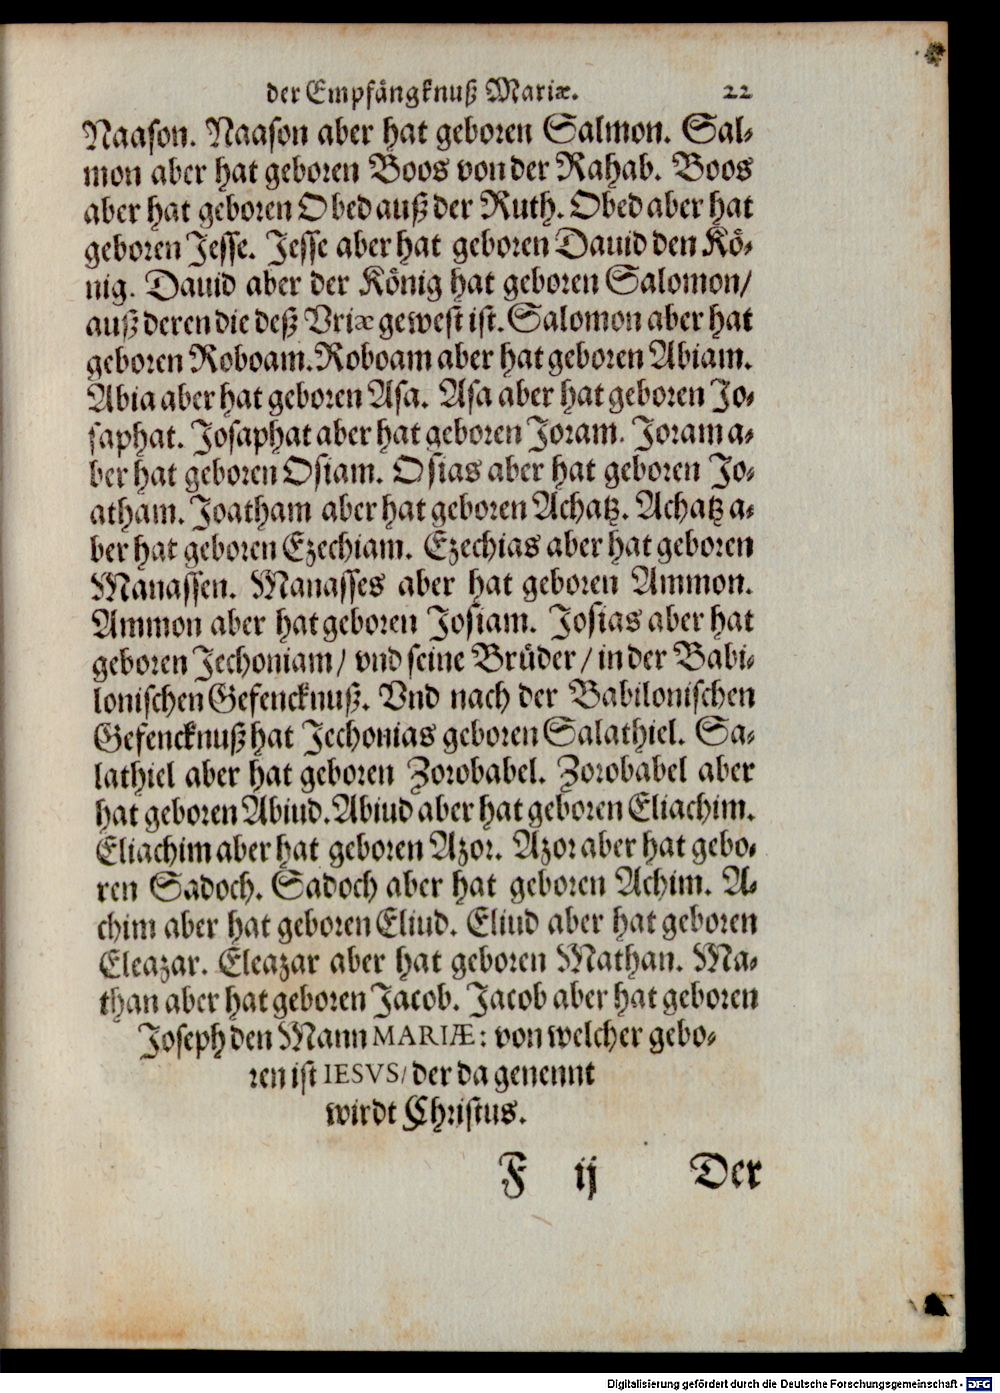 der Empfångknuß Mariæ. 22
Naason. Naason aber hat geboren Salmon. Sal-
mon aber hat geboren Boos von der Rahab. Boos
aber hat geboren Obed auß der Ruth. Obed aber hat
geboren Jesse. Jesse aber hat geboren Dauid den Kö-
nig. Dauid aber der König hat geboren Salomon/
auß deren die deß Vriæ gewest ist. Salomon aber hat
geboren Roboam. Roboam aber hat geboren Abiam.
Abia aber hat geboren Asa. Asa aber hat geboren Jo-
saphat. Josaphat aber hat geboren Joram. Joram a-
ber hat geboren Osiam. Osias aber hat geboren Jo-
atham. Joatham aber hat geboren Achatz. Achatz a-
ber hat geboren Ezechiam. Ezechias aber hat geboren
Manassen. Manasses aber hat geboren Ammon.
Ammon aber hat geboren Josiam. Josias aber hat
geboren Jechoniam/ vnd seine Brůder/ in der Babi-
lonischen Gefencknuß. Vnd nach der Babilonischen
Gefencknuß hat Jechonias geboren Salathiel. Sa-
lathiel aber hat geboren Zorobabel. Zorobabel aber
hat geboren Abiud. Abiud aber hat geboren Eliachim.
Eliachim aber hat geboren Azor. Azor aber hat gebo-
ren Sadoch. Sadoch aber hat geboren Achim. A-
chim aber hat geboren Eliud. Eliud aber hat geboren
Eleazar. Eleazar aber hat geboren Mathan. Ma-
than aber hat geboren Jacob. Jacob aber hat geboren
Joseph den Mann MARIÆ: von welcher gebo-
ren ist IESVS/ der da genennt
wirdt Christus.
F ij Der
Digitalisierung gefördert durch die Deutsche Forschungsgemeinschaft - DFG